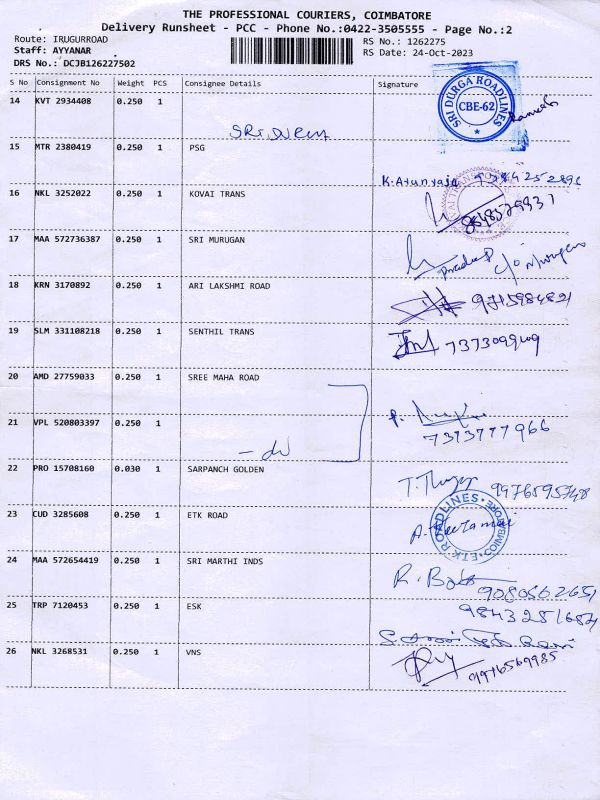 THE PROFESSIONAL COURIERS, COIMBATORE
Delivery Runsheet - PCC - Phone No.:0422-3505555 - Page No.:2
Route: IRUGURROAD
Staff: AYYANAR
DRS No.: DCJB126227502
RS No.: 1262275
RS Date: 24-Oct-2023
S No Consignment No Weight PCS Consignee Details Signature
14 KVT 2934408 0.250 1
SRI DURGA ROADLINES
CBE-62
15 MTR 2380419 0.250 1 PSG
16 NKL 3252022 0.250 1 KOVAI TRANS
17 MAA 572736387 0.250 1 SRI MURUGAN
18 KRN 3170892 0.250 1 ARI LAKSHMI ROAD
9715984821
19 SLM 331108218 0.250 1 SENTHIL TRANS
20 AMD 27759033 0.250 1 SREE MAHA ROAD
21 VPL 520803397 0.250 1
7373777966
22 PRO 15708160 0.030 1 SARPANCH GOLDEN
9976595748
23 CUD 3285608 0.250 1 ETK ROAD
ETK ROADLINES
COIMBATORE
24 MAA 572654419 0.250 1 SRI MARTHI INDS
9080562651
25 TRP 7120453 0.250 1 ESK
9843251684
26 NKL 3268531 0.250 1 VNS
9976569985